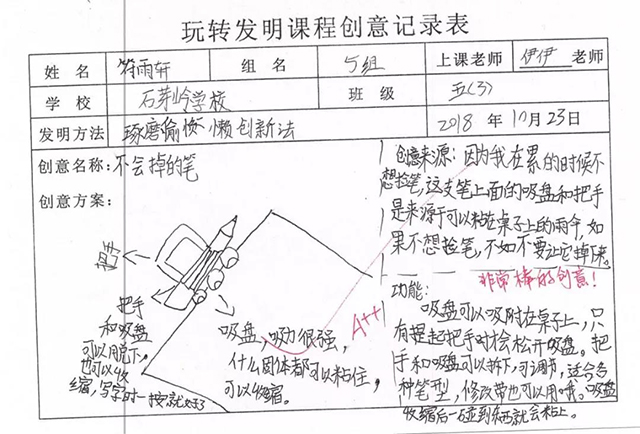 玩转发明课程创意记录表
姓 名 符雨轩 组 名 5组 上课老师 伊伊 老师
学 校 石芽岭学校 班 级 五(3)
发明方法 琢磨偷懒创新法 2018 年 10月 23日
创意名称：不会掉的笔
创意方案：
把手
把手
和吸盘
可以用完下,
也可以收
缩,写字时一按就好了
吸盘,吸力很强,
什么固体都可以粘住,
可以收缩。
A++
创意来源：因为我在累的时候不
想捡笔,这支笔上面的吸盘和把手
是来源于可以粘在桌子上的雨伞,如
果不想捡笔,不如不要让它掉下来。
非常棒的创意!
功能：
吸盘可以吸附在桌子上,只
有提起把手时才会松开吸盘。把
手和吸盘可以拆下,可调节,适合多
种笔型,修改带也可以用哦。吸盘
收缩后一碰到东西就会粘上。